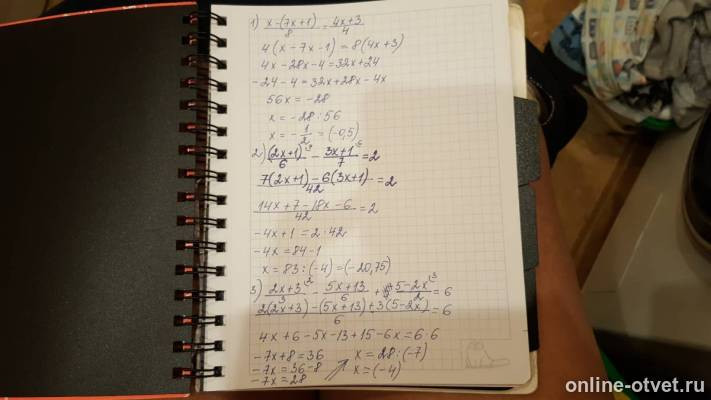 1) x-(7x+1)/8 = 4x+3/4
4(x-7x-1)=8(4x+3)
4x-28x-4=32x+24
-24-4=32x+28x-4x
56x=-28
x=-28:56
x=-1/2=(-0,5)
2) (2x+1)/6 - 3x+1/7 =2
7(2x+1)-6(3x+1)/42 =2
14x+7-18x-6/42 =2
-4x+1=2·42
-4x=84-1
x=83:(-4)=(-20,75)
3) 2x+3/3 - 5x+13/6 + 5-2x/2 =6
2(2x+3)-(5x+13)+3(5-2x)/6 =6
4x+6-5x-13+15-6x=6·6
-7x+8=36 x=28:(-7)
-7x=36-8 x=(-4)
-7x=28
online-otvet.ru